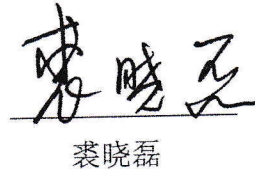 裘晓磊
裘晓磊